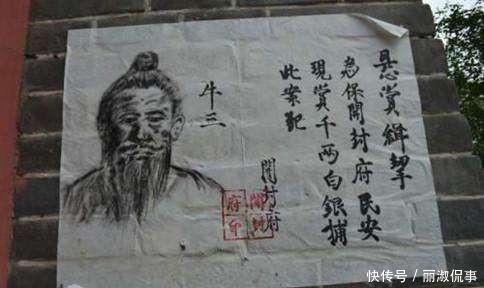 悬賞緝拏
為保開封府民安
現賞千兩白銀捕
此案犯
開封府
開封
府印
牛三
快传号 / 丽淑侃事